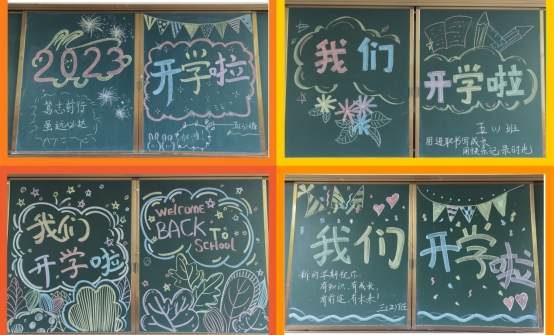 2023
笃志前行
虽远必达
开学啦
五(2)班
我们
开学啦
五(1)班
用进取书写成长
用快乐记录时光
我们
开学啦
welcome
BACK TO
SCHOOL
我们
新的学期祝你
有知识,有成长,
有前途,有未来!
三(2)班
开学啦